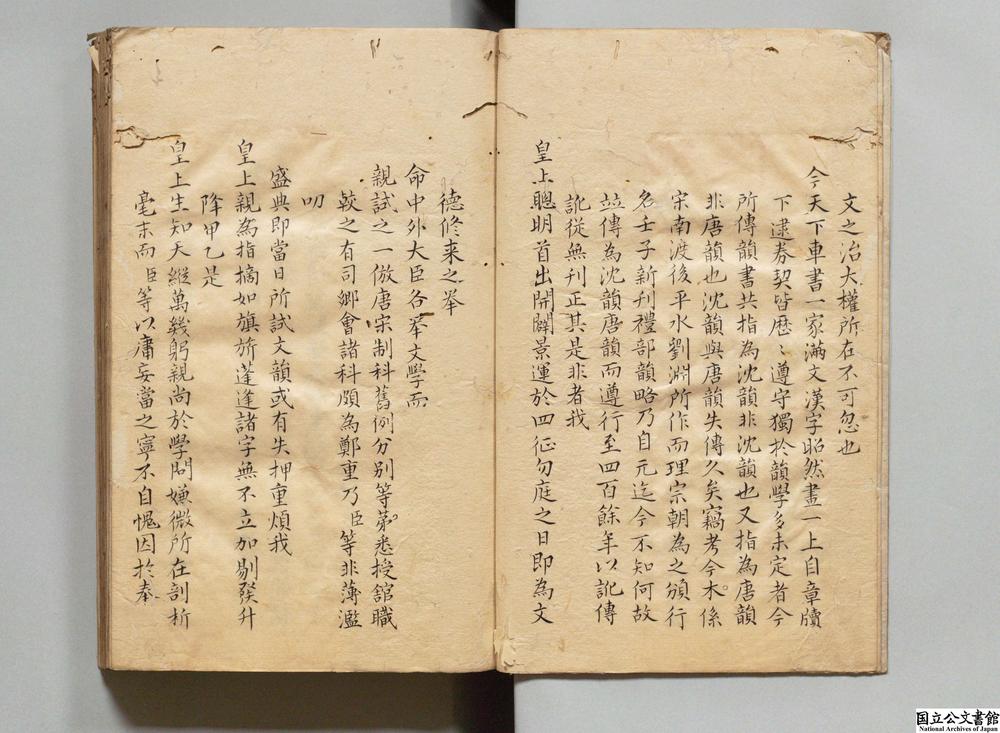 文之治大權所在不可忽也
今天下車書一家滿文漢字昭然畫一上自章牘
下逮券契皆歷〻遵守獨於韻學多未定者今
所傳韻書共指為沈韻非沈韻也又指為唐韻
非唐韻也沈韻與唐韻失傳久矣竊考今本係
宋南渡後平水劉淵所作而理宗朝為之頒行
名壬子新刊禮部韻略乃自元迄今不知何故
竝傳為沈韻唐韻而遵行至四百餘年以訛傳
訛從無刊正其是非者我
皇上聰明首出開闢景運於四征勿庭之日即為文
德修来之举
命中外大臣各举文學而
親試之一倣唐宋制科舊例分別等第悉授舘職
較之有司鄉會諸科頗為鄭重乃臣等非薄濫
叨
盛典即當日所試文韻或有失押重煩我
皇上親為指摘如旗旂蓬逢諸字無不立加剔發升
降甲乙是
皇上生知天縱萬幾躬親尚於學問嫌微所在剖析
毫末而臣等以庸妄當之寧不自愧因於奉
国立公文書館
National Archives of Japan